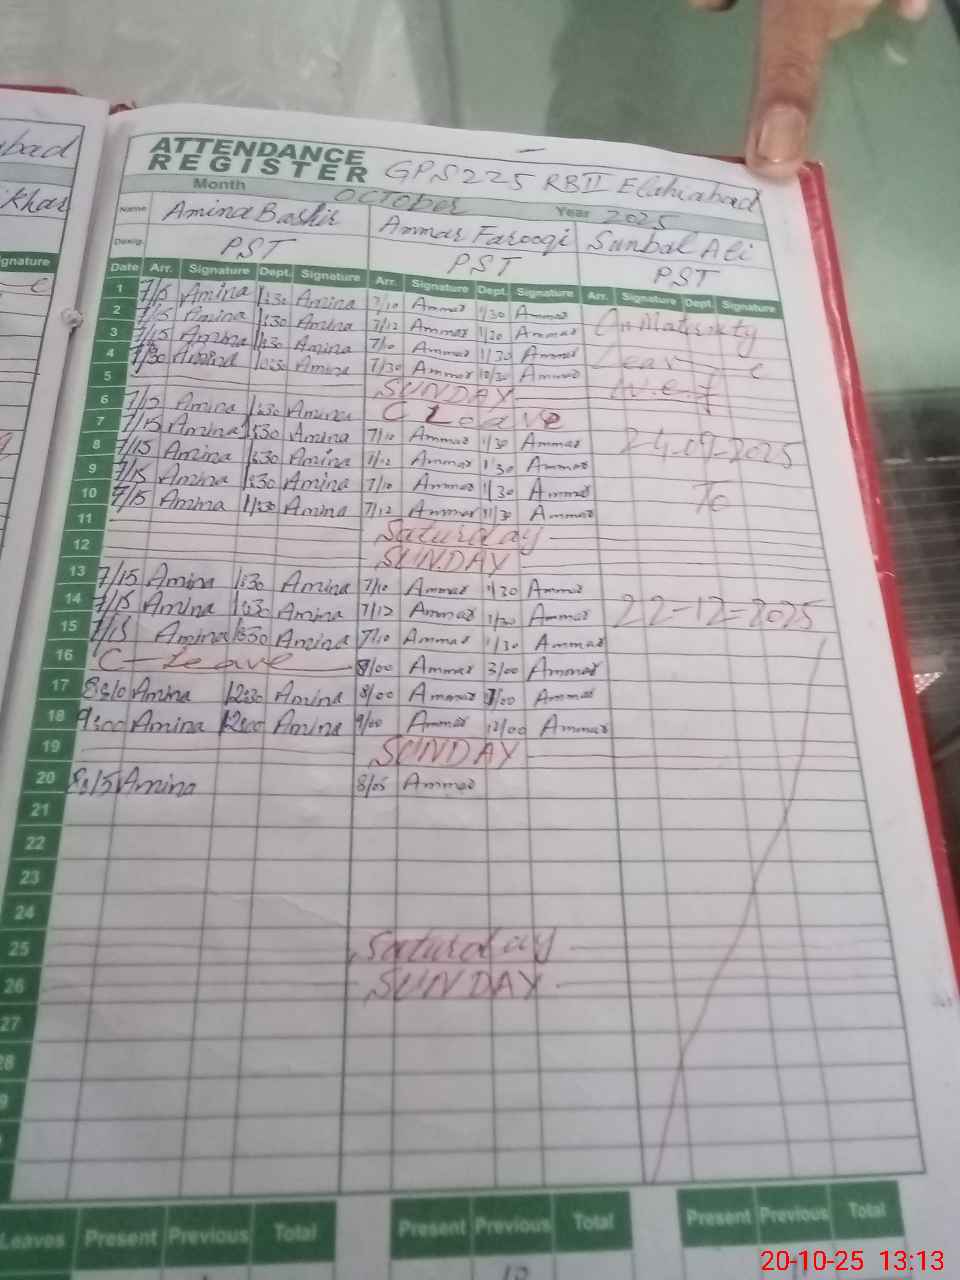 bad
khar
gnature
ATTENDANCE
REGISTER GPS 225 RB II Elahiabad
Month OCTOBER Year 2025
Name Amina Bashir Ammar Farooqi Sunbal Ali
Desig. PST PST PST
Date Arr. Signature Dept. Signature Arr. Signature Dept. Signature Arr. Signature Dept. Signature
1 7/15 Amina 1:30 Amina 7/10 Ammar 1/30 Ammar On Maternity
2 7/15 Amina 1:30 Amina 7/12 Ammar 1/20 Ammar
3 7/15 Amina 1:30 Amina 7/10 Ammar 11/30 Ammar Leave
4 7/30 Amina 10:30 Amina 7/30 Ammar 10/30 Ammar
5 SUNDAY w.e.f
6 Amina 1:30 Amina C Leave
7 7/15 Amina 1:30 Amina 7/10 Ammar 1/30 Ammar 24-09-2025
8 7/15 Amina 1:30 Amina 7/12 Ammar 1/30 Ammar
9 7/15 Amina 1:30 Amina 7/10 Ammar 1/30 Ammar To
10 7/15 Amina 1:30 Amina 7/12 Ammar 11/30 Ammar
11 Saturday
12 SUNDAY
13 7/15 Amina 1:30 Amina 7/10 Ammar 1/30 Ammar
14 7/15 Amina 1:30 Amina 7/12 Ammar Ammar 22-12-2025
15 7/15 Amina 1:30 Amina 7/10 Ammar 1/30 Ammar
16 C-Leave 8/00 Ammar 3/00 Ammar
17 Amina 12:30 Amina 8/00 Ammar Ammar
18 9:00 Amina 12:00 Amina 9/00 Ammar 12/00 Ammar
19 SUNDAY
20 8:15 Amina 8/05 Ammar
21
22
23
24
25 Saturday
26 SUNDAY
27
28
9
Leaves Present Previous Total Present Previous Total Present Previous Total
20-10-25 13:13